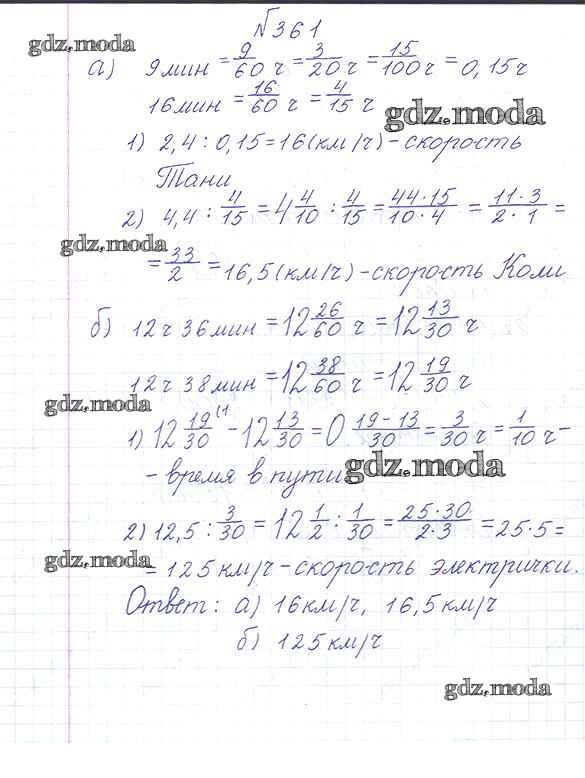 №361
gdz.moda
а) 9 мин = 9/60 ч = 3/20 ч = 15/100 ч = 0,15 ч
16 мин = 16/60 ч = 4/15 ч
gdz.moda
1) 2,4 : 0,15 = 16 (км/ч) - скорость
Тани
2) 4,4 : 4/15 = 4 4/10 : 4/15 = 44·15/10·4 = 11·3/2·1 =
gdz.moda
= 33/2 = 16,5 (км/ч) - скорость Коли
б) 12 ч 36 мин = 12 26/60 ч = 12 13/30 ч
12 ч 38 мин = 12 38/60 ч = 12 19/30 ч
gdz.moda
1) 12 19/30 (1 - 12 13/30 = 0 19-13/30 = 3/30 ч = 1/10 ч -
- время в пути
gdz.moda
2) 12,5 : 3/30 = 12 1/2 : 1/30 = 25·30/2·3 = 25·5 =
gdz.moda
= 125 км/ч - скорость электрички.
Ответ: а) 16 км/ч, 16,5 км/ч
б) 125 км/ч
gdz.moda